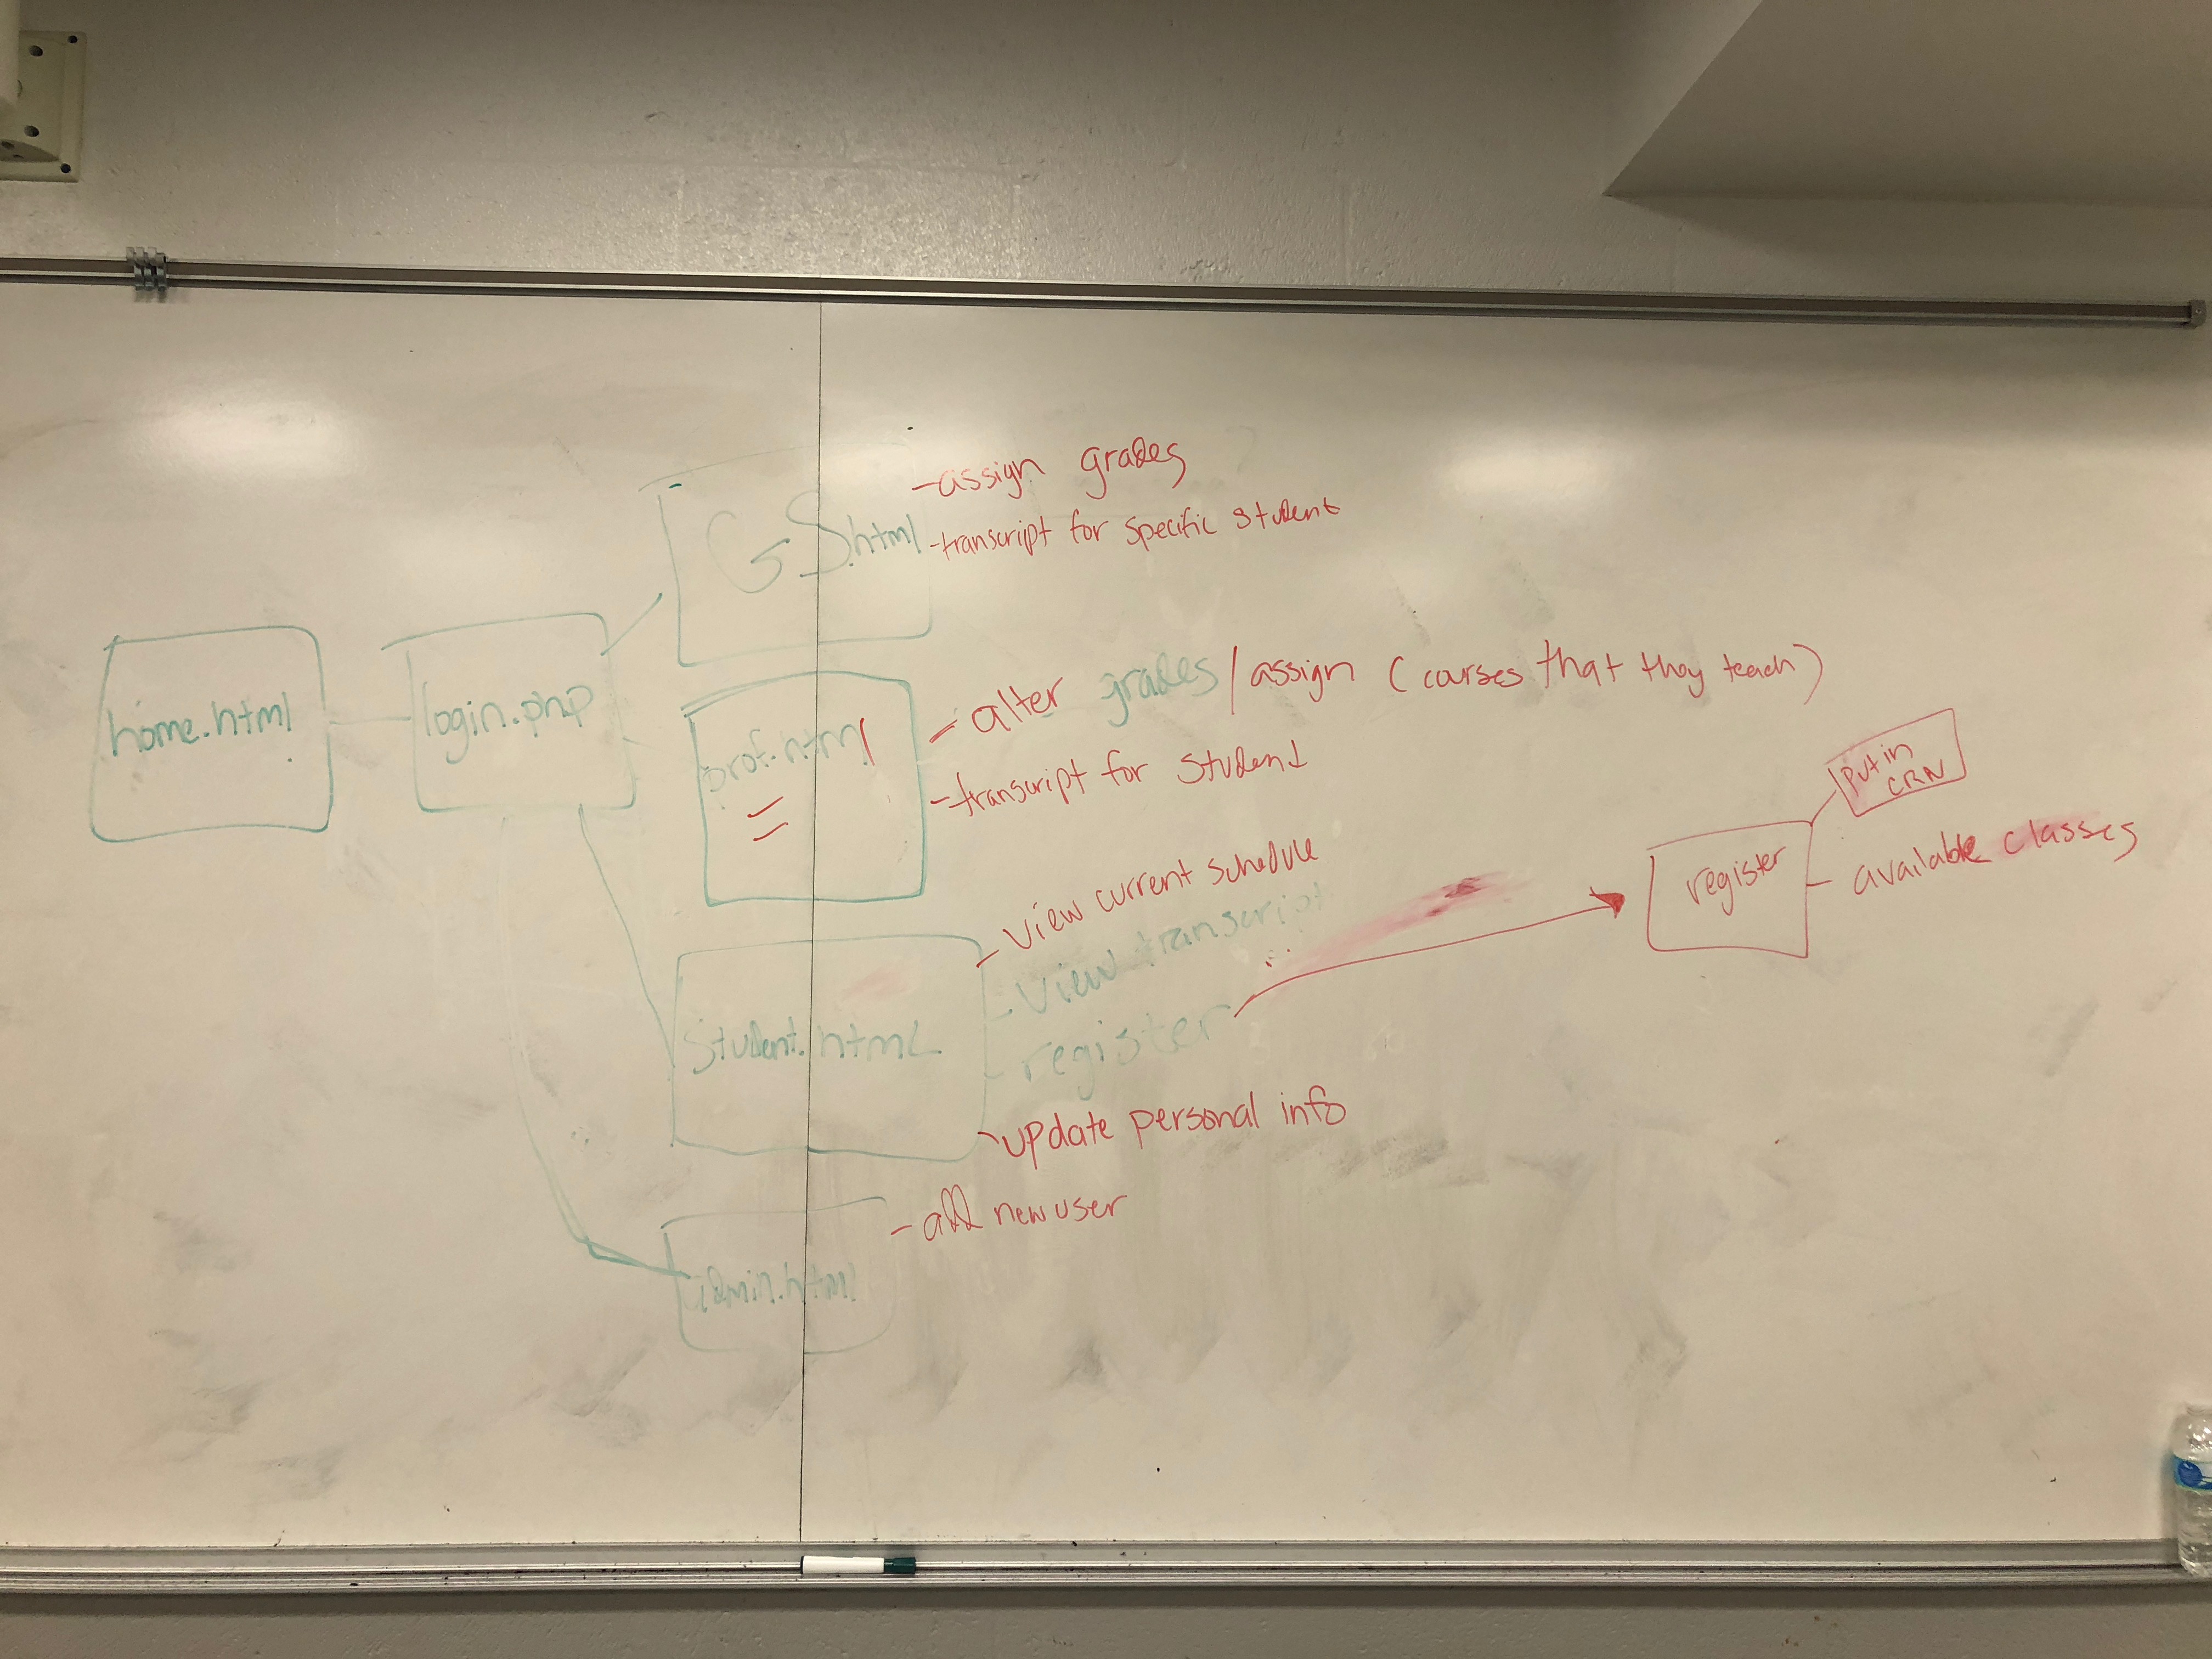 home.html
login.php
GS.html
-assign grades
-transcript for specific student
prof.html
- alter grades/assign (courses that they teach)
-transcript for student
student.html
- view current schedule
- view transcript
- register
- update personal info
admin.html
- add new user
register
put in
CRN
- available classes